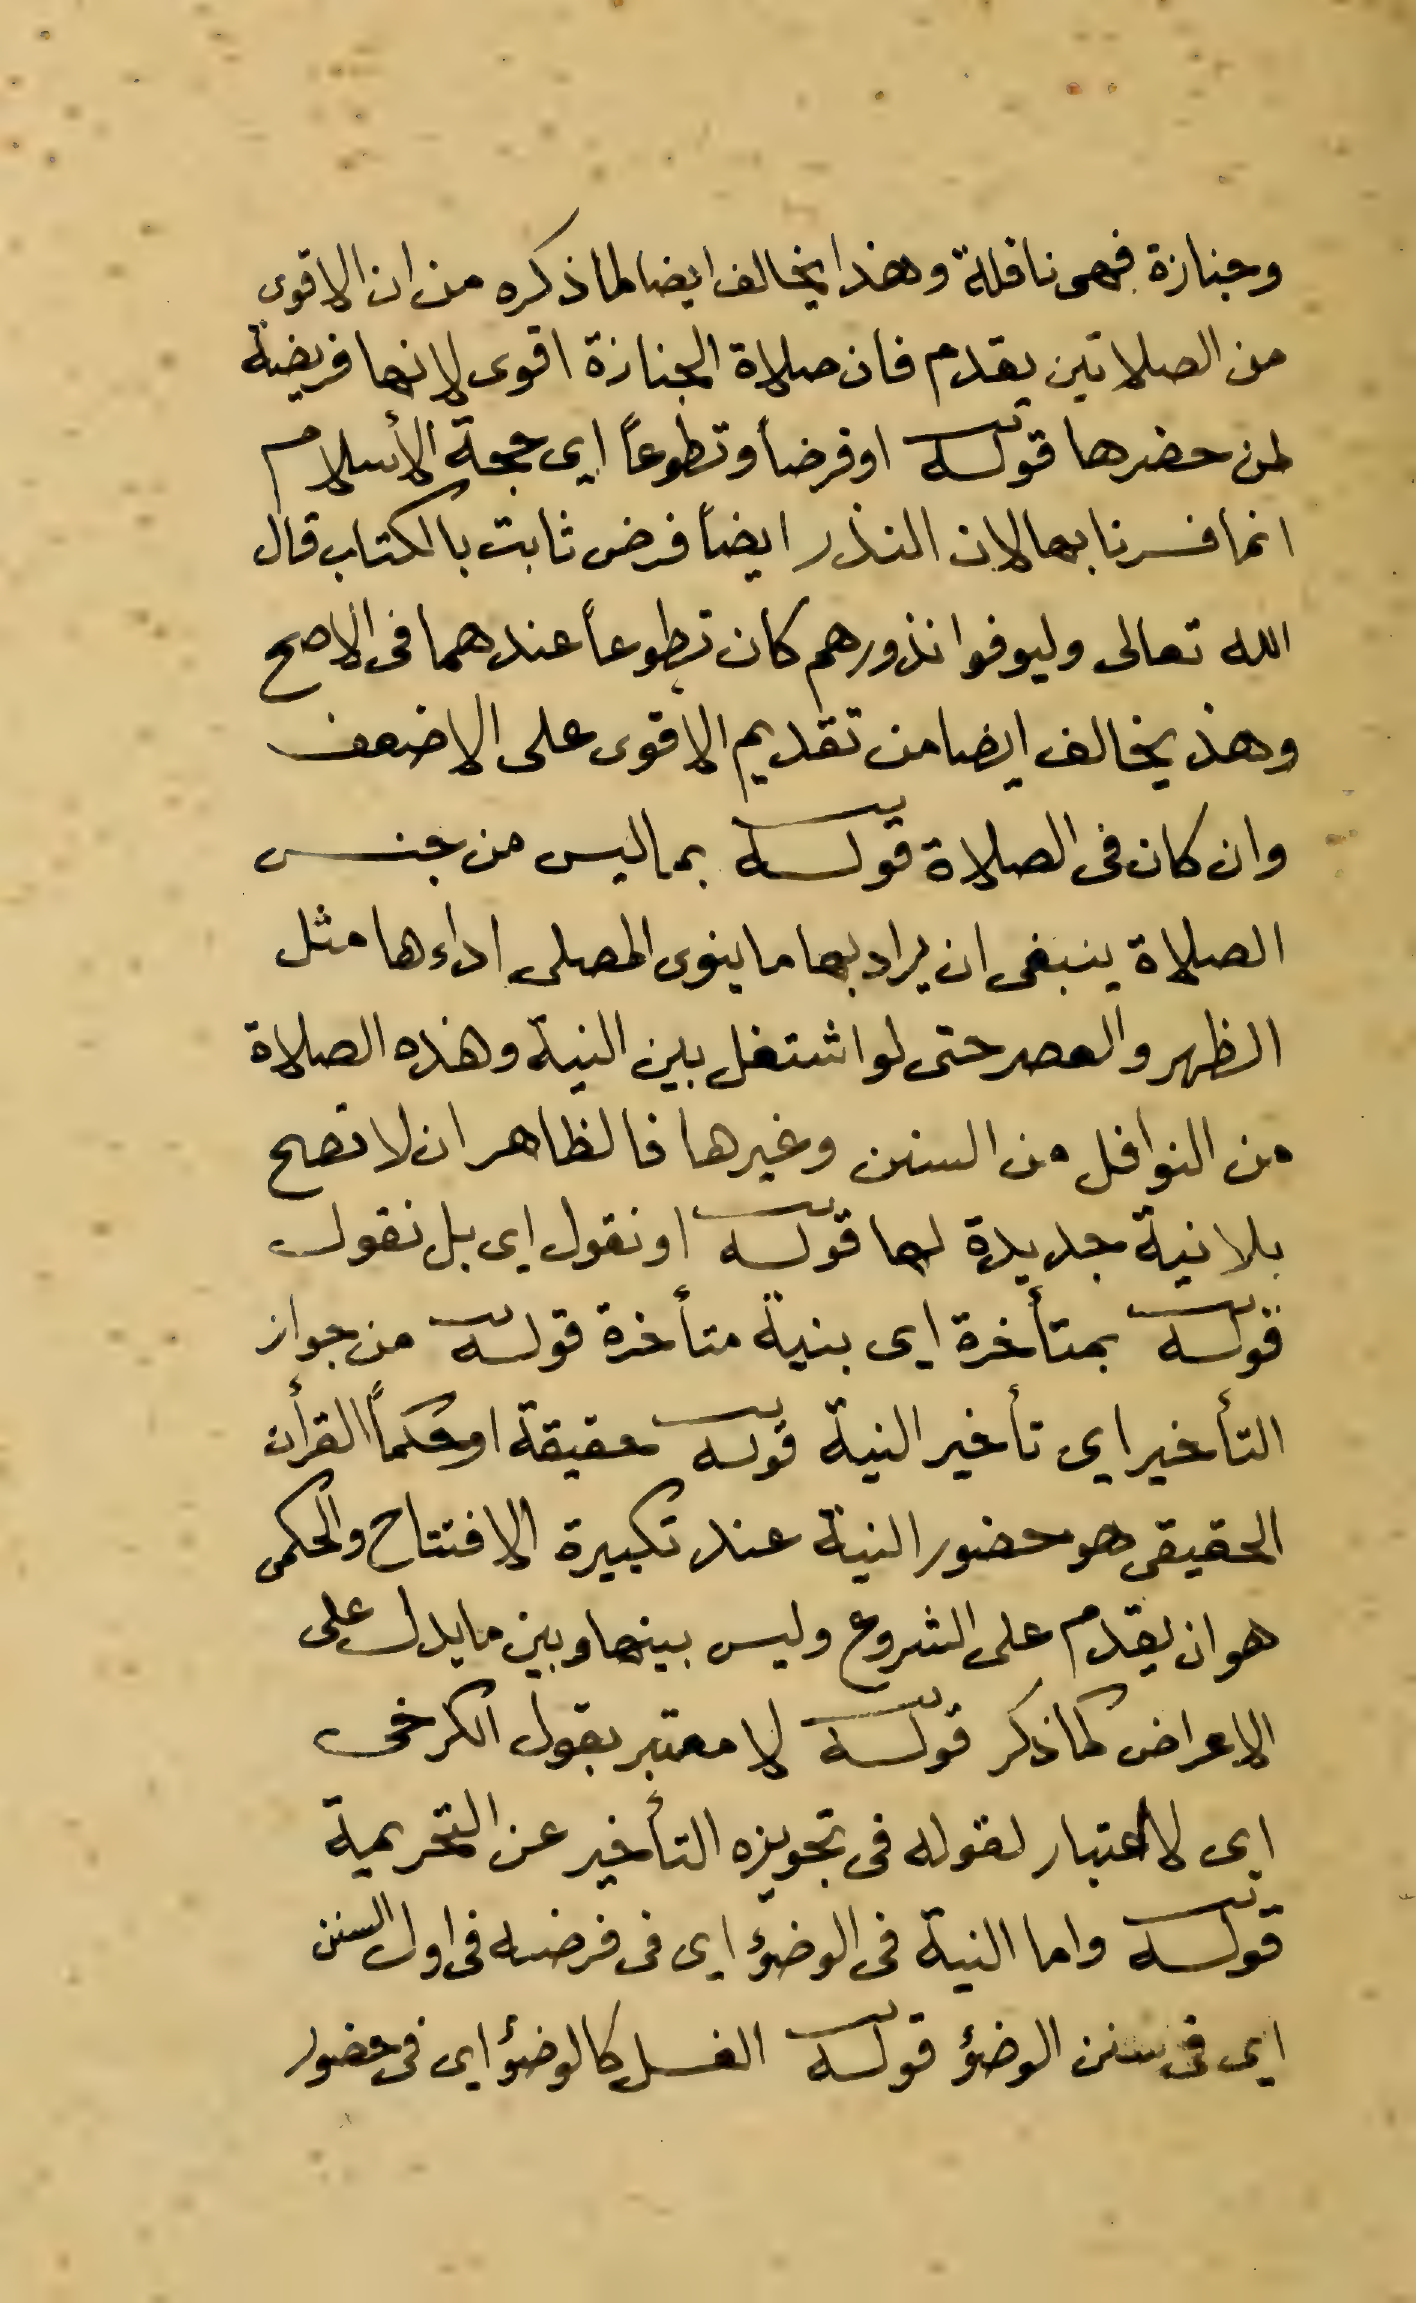 وجنازة فهى نافلة وهذا يخالف ايضا لما ذكره من ان الاقوى
من الصلاتين يقدم فان صلاة الجنازة اقوى لانها فريضة
لمن حضرها قوله او فرضاً وتطوعاً اى حجة الأسلام
انما فسرنا بها لان النذر ايضاً فرض ثابت بالكتاب قال
الله تعالى وليوفوا نذورهم كان تطوعاً عندهما فى الاصح
وهذ يخالف ايضا من تقديم الاقوى على الاضعف
وان كان فى الصلاة قوله بما ليس من جنس
الصلاة ينبغى ان يراد بها ما ينوى المصلى اداءها مثل
الظهر والعصر حتى لو اشتغل بين النية وهذه الصلاة
من النوافل من السنن وغيرها فالظاهر ان لا تصح
بلا نية جديدة لها قوله او نقول اى بل نقول
قوله بمتأخرة اى بنية متأخرة قوله من جواز
التأخير اى تأخير النية قوله حقيقة او حكماً القرأن
الحقيقى هو حضور النية عند تكبيرة الافتتاح والحكمى
هو ان يقدم على الشروع وليس بينها وبين ما يدل على
الاعراض كما ذكر قوله لا معتبر بقول الكرخى
اى لا اعتبار لقوله فى تجويزه التأخير عن التحريمة
قوله واما النية فى الوضؤ اى فى فرضه فى اول السنن
اى فى سنن الوضؤ قوله الغسل كالوضؤ اى فى حضور